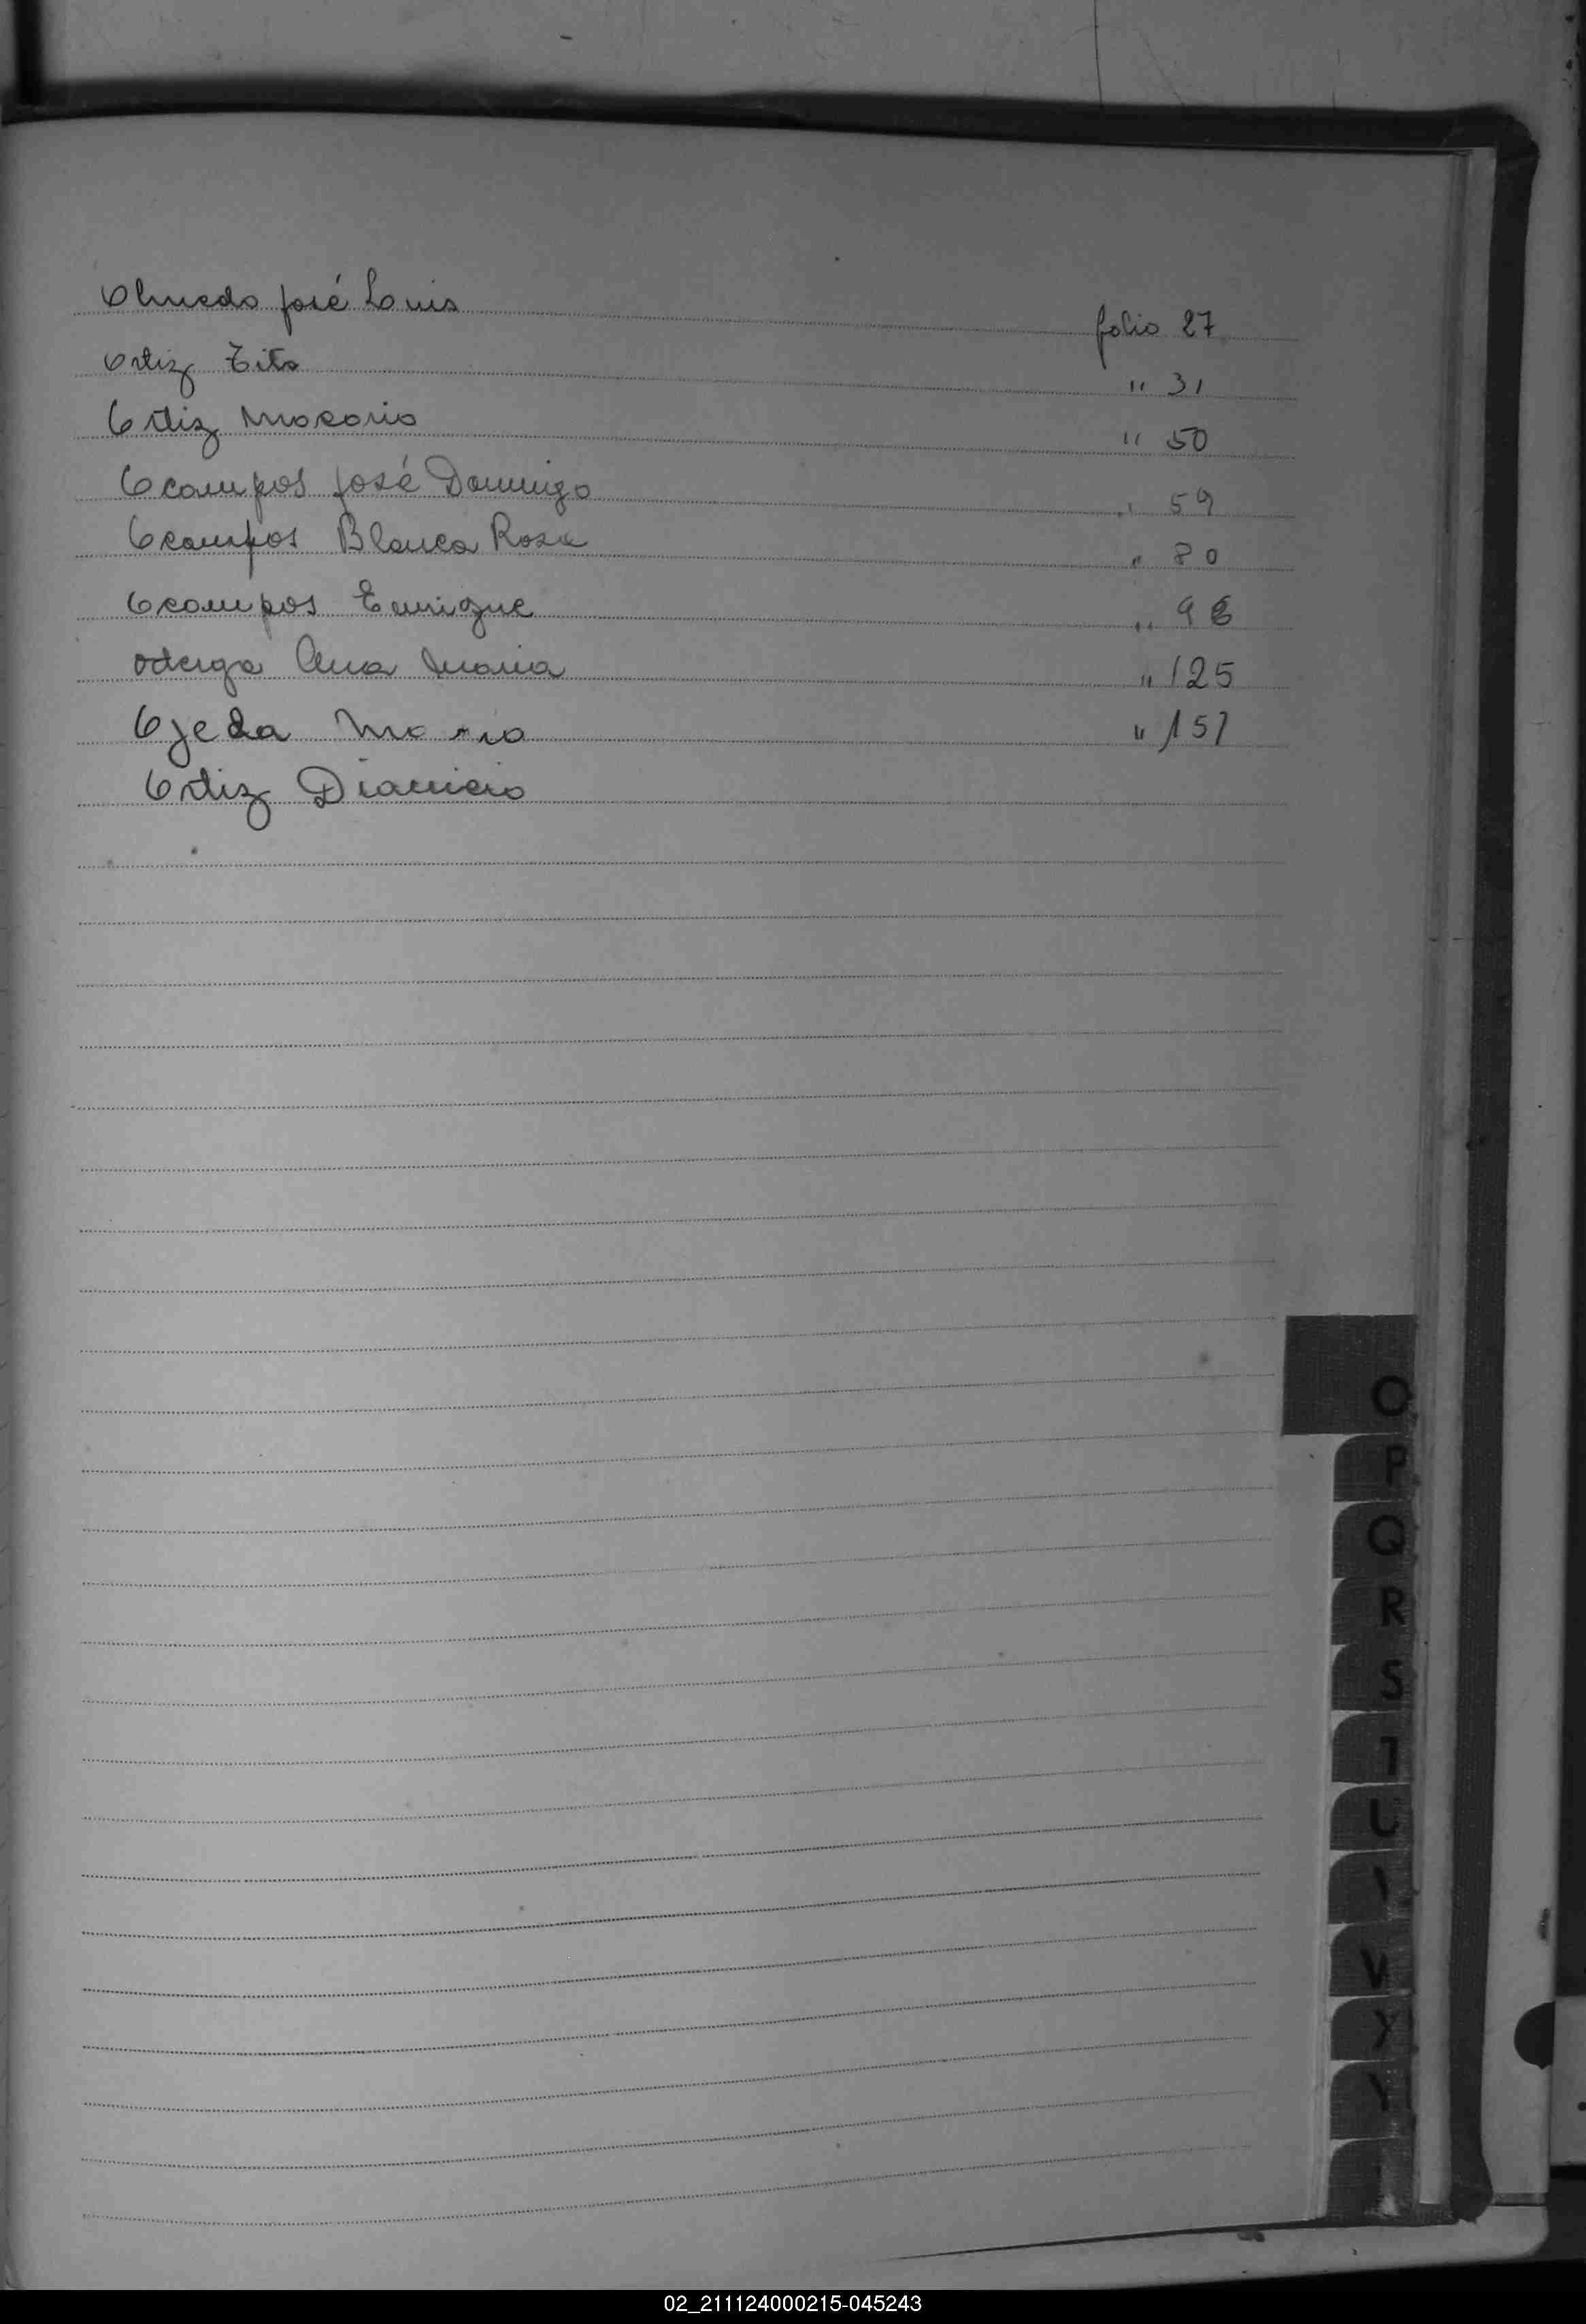 Olmedo José Luis folio 27
Ortiz Tito " 31
Ortiz Macario " 50
Ocampos José Domingo " 59
Ocampos Blanca Rosa " 80
Ocampos Enrique " 98
Ana Maria " 125
Ojeda Maria " 157
Ortiz Dianicio
O
P
Q
R
S
T
U
V
X
Y
02_211124000215-045243